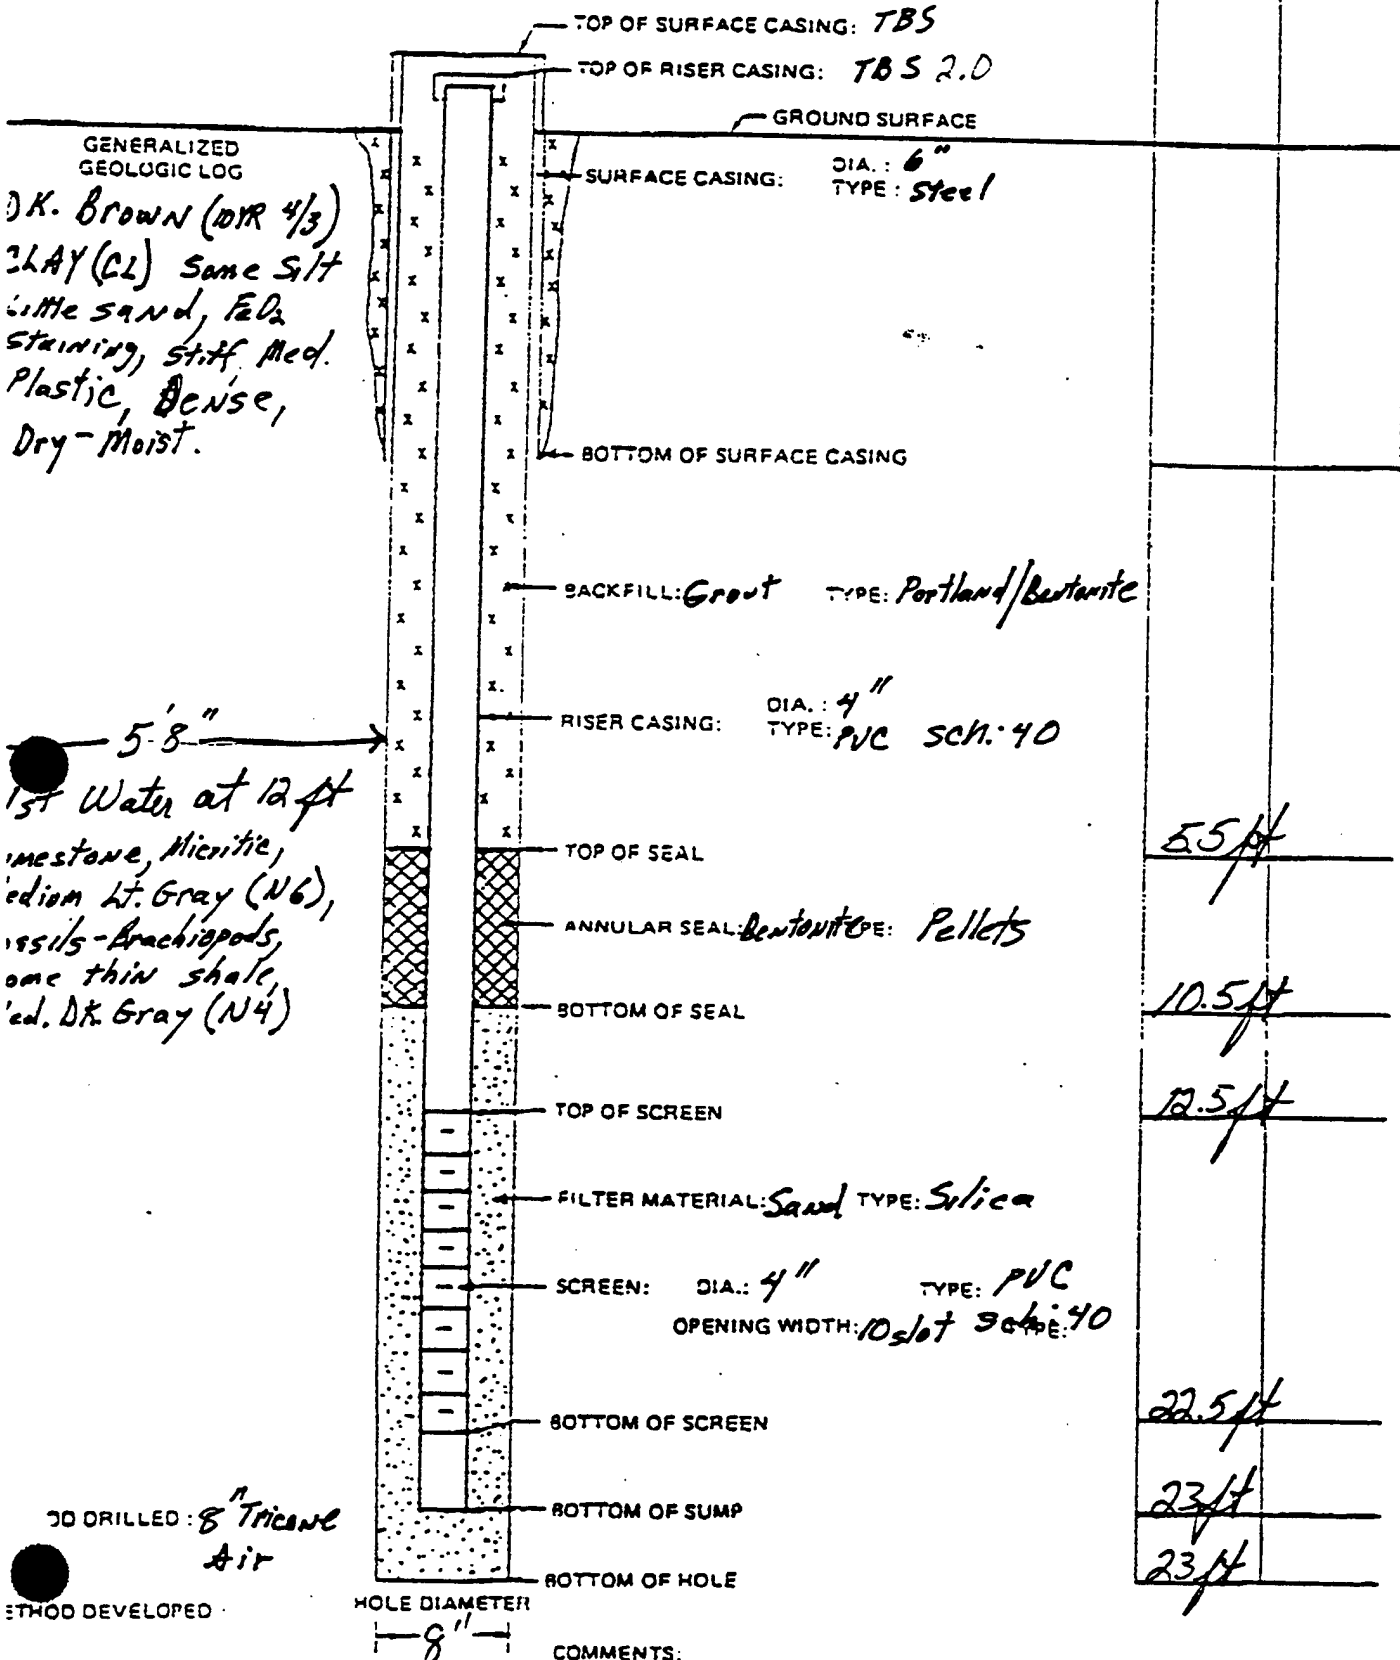 TOP OF SURFACE CASING: TBS
TOP OF RISER CASING: TBS 2.0
GROUND SURFACE
GENERALIZED
GEOLOGIC LOG
DIA.: 6"
SURFACE CASING: TYPE: Steel
DK. Brown (10YR 4/3)
CLAY (CL) Some Silt
Little sand, FeO2
Staining, Stiff, Med.
Plastic, Dense,
Dry-Moist.
BOTTOM OF SURFACE CASING
BACKFILL: Grout TYPE: Portland/Bentonite
DIA.: 4"
RISER CASING: TYPE: PVC sch. 40
5'8"
1st Water at 12 ft
imestone, Micritic,
edium Lt. Gray (N6),
ssils-Brachiopods,
ome thin shale,
ed. DK. Gray (N4)
TOP OF SEAL 5.5 ft
ANNULAR SEAL: Bentonite PE: Pellets
BOTTOM OF SEAL 10.5 ft
TOP OF SCREEN 12.5 ft
FILTER MATERIAL: Sand TYPE: Silica
SCREEN: DIA.: 4" TYPE: PVC
OPENING WIDTH: 10 slot sch. 40
BOTTOM OF SCREEN 22.5 ft
BOTTOM OF SUMP 23 ft
OD DRILLED: 8" Tricone
Air
BOTTOM OF HOLE 23 ft
ETHOD DEVELOPED
HOLE DIAMETER
8"
COMMENTS: